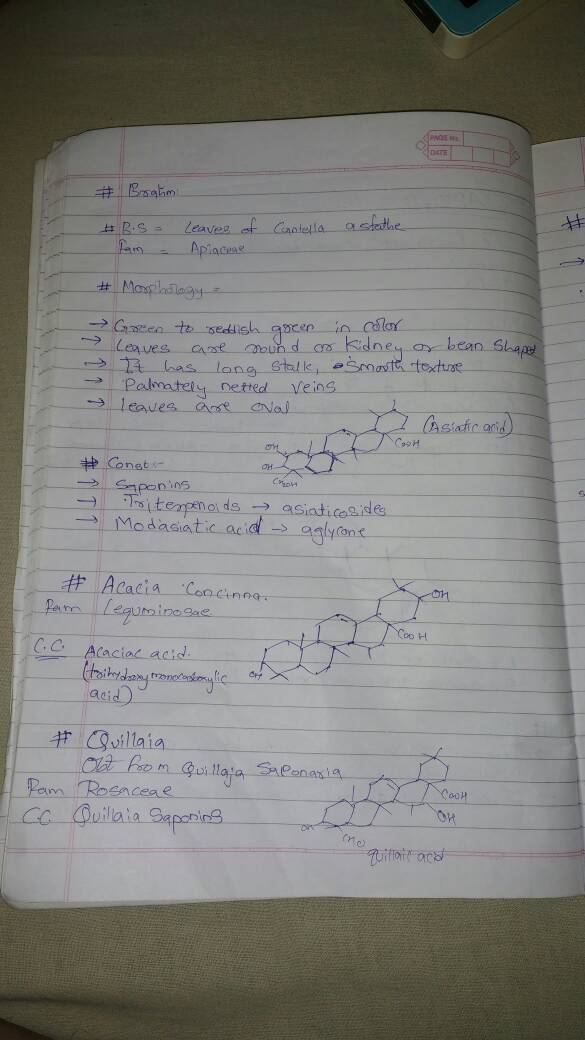 PAGE No.
DATE
# Brahmi
# B.S = Leaves of Cantella asfathe
Fam = Apiaceae
# Morphology =
→ Green to reddish green in color
→ Leaves are round or kidney or bean shaped
→ It has long stalk, smooth texture
→ Palmately netted veins
→ leaves are oval
(Asiatic acid)
COOH
OH
OH
CH2OH
# Const:-
→ Saponins
→ Triterpenoids → asiaticosides
→ Madasiatic acid → aglycone
# Acacia Concinna.
Fam Leguminosae
OH
COOH
OH
C.C. Acaciac acid.
(trihydroxy monocarboxylic
acid)
# Quillaia
Obt from Quillaja Saponaria
Fam Rosaceae
CC Quillaia Saponins
COOH
OH
OH
CHO
quillaic acid
#
→